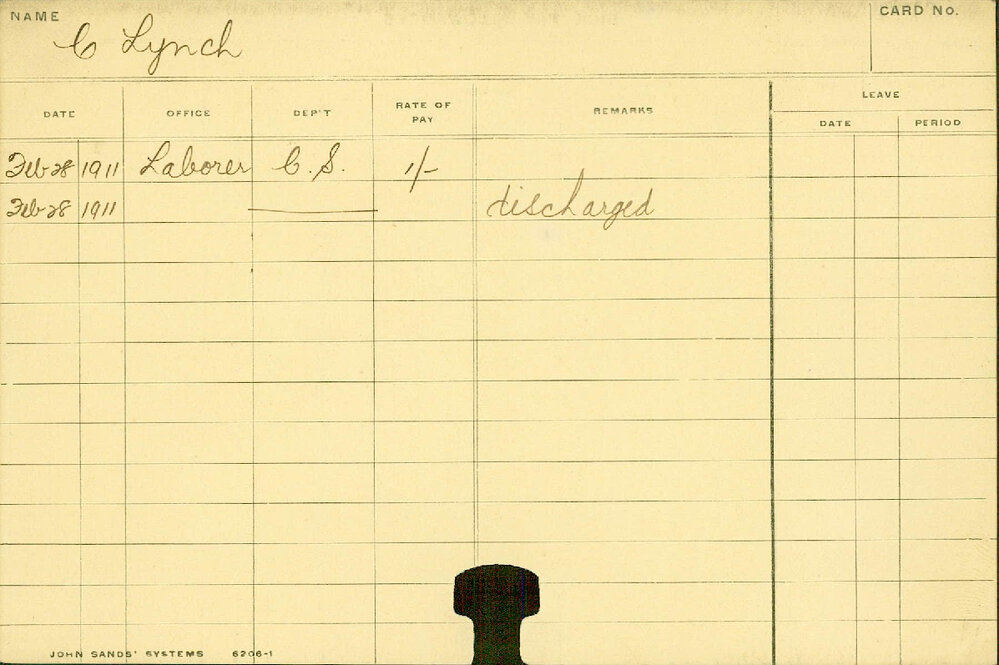 NAME
CARD NO.
C Lynch
LEAVE
DATE OFFICE DEP'T RATE OF PAY REMARKS DATE PERIOD
Feb 28 1911 Laborer C.S. 1/-
Feb 28 1911 discharged
JOHN SANDS' SYSTEMS 6206-1